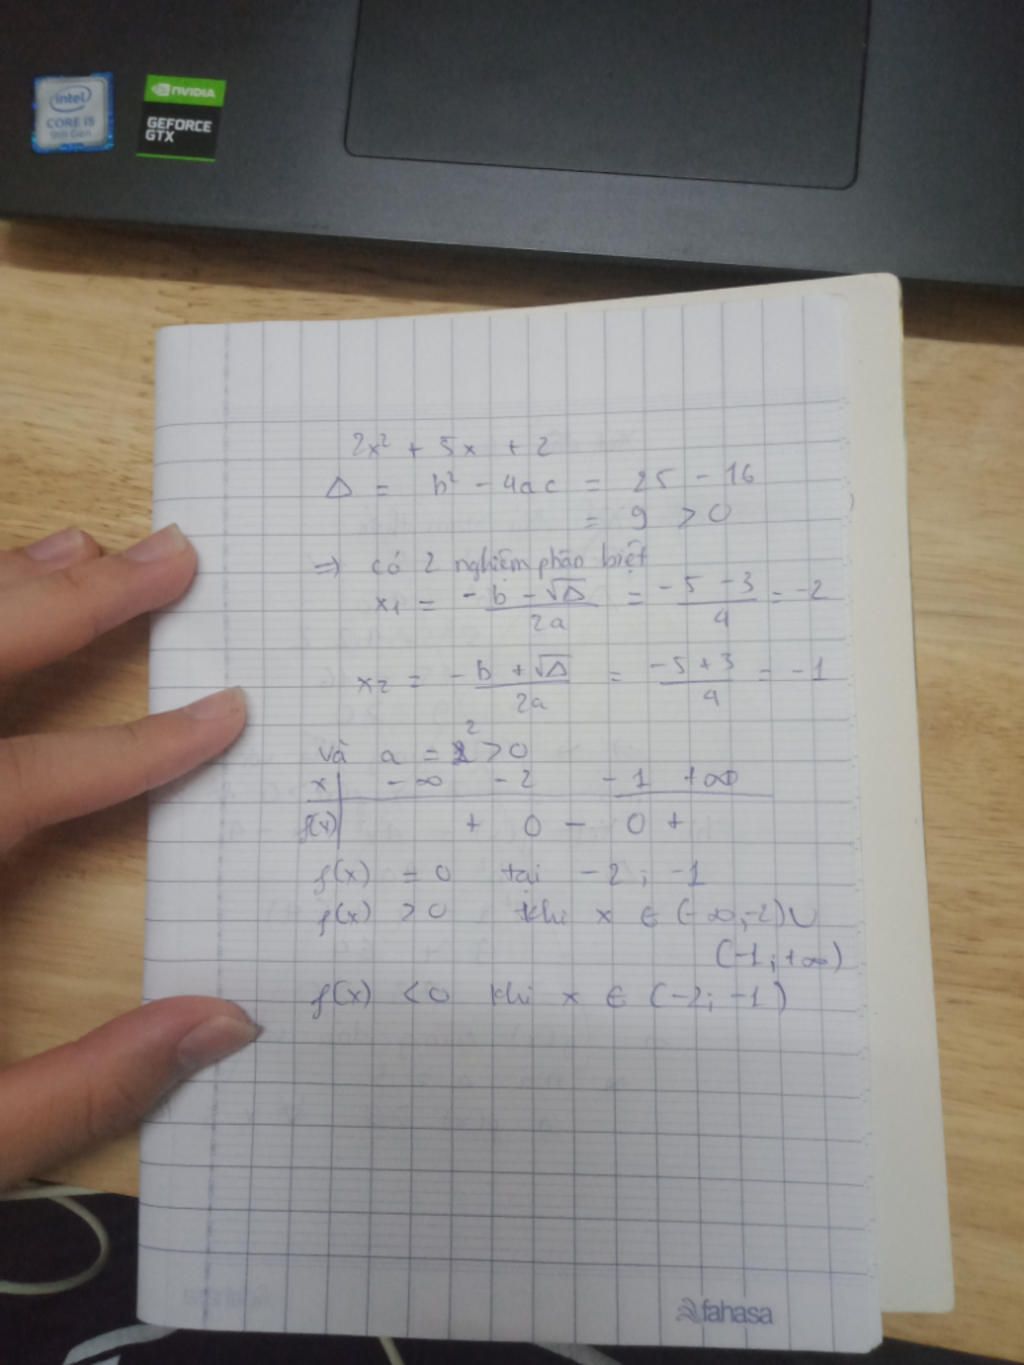 intel
CORE i5
9th Gen
NVIDIA
GEFORCE
GTX
2x² + 5x + 2
Δ = b² - 4ac = 25 - 16
= 9 > 0
=> có 2 nghiệm phân biệt
x₁ = (-b - √Δ)/2a = (-5 - 3)/4 = -2
x₂ = (-b + √Δ)/2a = (-5 + 3)/4 = -1
và a = 2 > 0
x | -∞ -2 -1 +∞
f(x) | + 0 - 0 +
f(x) = 0 tại -2 ; -1
f(x) > 0 khi x ∈ (-∞,-2) ∪
(-1 ; +∞)
f(x) < 0 khi x ∈ (-2 ; -1)
fahasa